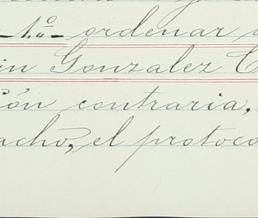 -1.º- ordenar
in Gonzalez C
ión contraria,
acho, el protoco